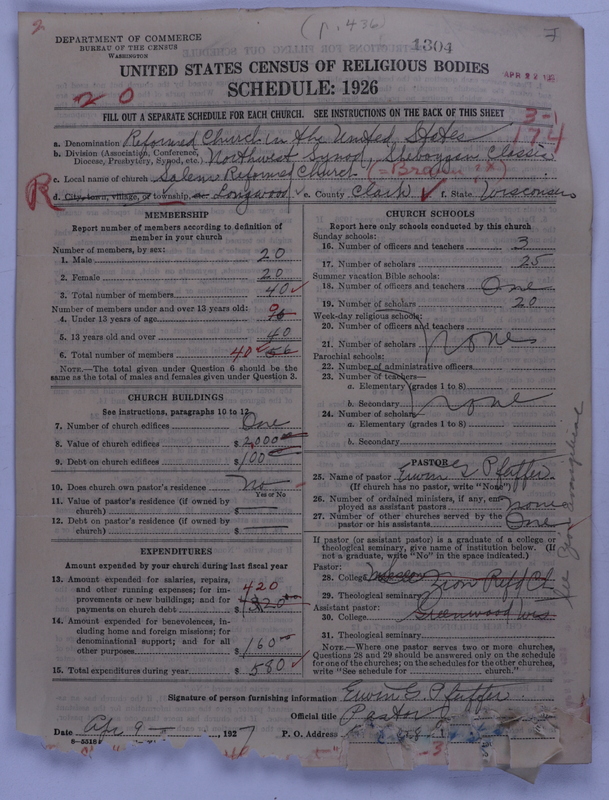 2
(p. 436)
1304
DEPARTMENT OF COMMERCE
BUREAU OF THE CENSUS
WASHINGTON
APR 22
UNITED STATES CENSUS OF RELIGIOUS BODIES
SCHEDULE: 1926
20
FILL OUT A SEPARATE SCHEDULE FOR EACH CHURCH. SEE INSTRUCTIONS ON THE BACK OF THIS SHEET
3-1
174
a. Denomination Reformed Church in the United States
b. Division (Association, Conference, Diocese, Presbytery, Synod, etc.) Northwest Synod, Sheboygan Classis
c. Local name of church Salem Reformed Church
R d. City, town, village, or township, etc. Longwood e. County Clark f. State Wisconsin
MEMBERSHIP
Report number of members according to definition of
member in your church
Number of members, by sex:
1. Male 20
2. Female 20
3. Total number of members 40
Number of members under and over 13 years old:
4. Under 13 years of age 0 16
5. 13 years old and over 40
6. Total number of members 40 56
NOTE.—The total given under Question 6 should be the
same as the total of males and females given under Question 3.
CHURCH BUILDINGS
See instructions, paragraphs 10 to 12
7. Number of church edifices One
8. Value of church edifices $ 2,000
9. Debt on church edifices $ 100
10. Does church own pastor's residence? No
Yes or No
11. Value of pastor's residence (if owned by
church) $
12. Debt on pastor's residence (if owned by
church) $
EXPENDITURES
Amount expended by your church during last fiscal year
13. Amount expended for salaries, repairs,
and other running expenses; for im-
provements or new buildings; and for
payments on church debt $ 420 320
14. Amount expended for benevolences, in-
cluding home and foreign missions; for
denominational support; and for all
other purposes $ 160
15. Total expenditures during year $ 580
CHURCH SCHOOLS
Report here only schools conducted by this church
Sunday schools:
16. Number of officers and teachers 3
17. Number of scholars 25
Summer vacation Bible schools:
18. Number of officers and teachers One
19. Number of scholars 20
Week-day religious schools:
20. Number of officers and teachers
21. Number of scholars none
Parochial schools:
22. Number of administrative officers
23. Number of teachers—
a. Elementary (grades 1 to 8)
b. Secondary none
24. Number of scholars—
a. Elementary (grades 1 to 8)
b. Secondary
PASTOR
25. Name of pastor Erwin G Pfeffer
(If church has no pastor, write "None")
26. Number of ordained ministers, if any, em-
ployed as assistant pastors none
27. Number of other churches served by the
pastor or his assistants One
If pastor (or assistant pastor) is a graduate of a college or
theological seminary, give name of institution below. (If
not a graduate, write "No" in the space indicated.)
Pastor:
28. College
29. Theological seminary Zion Reff Ch
Assistant pastor:
30. College Greenwood Wis
31. Theological seminary
NOTE.—Where one pastor serves two or more churches,
Questions 28 and 29 should be answered only on the schedule
for one of the churches; on the schedules for the other churches,
write "See schedule for church."
See Zion Evangelical
Signature of person furnishing information Erwin G. Pfeffer
Official title Pastor
Date Apr 9 , 1927
P. O. Address
8—5518
-3